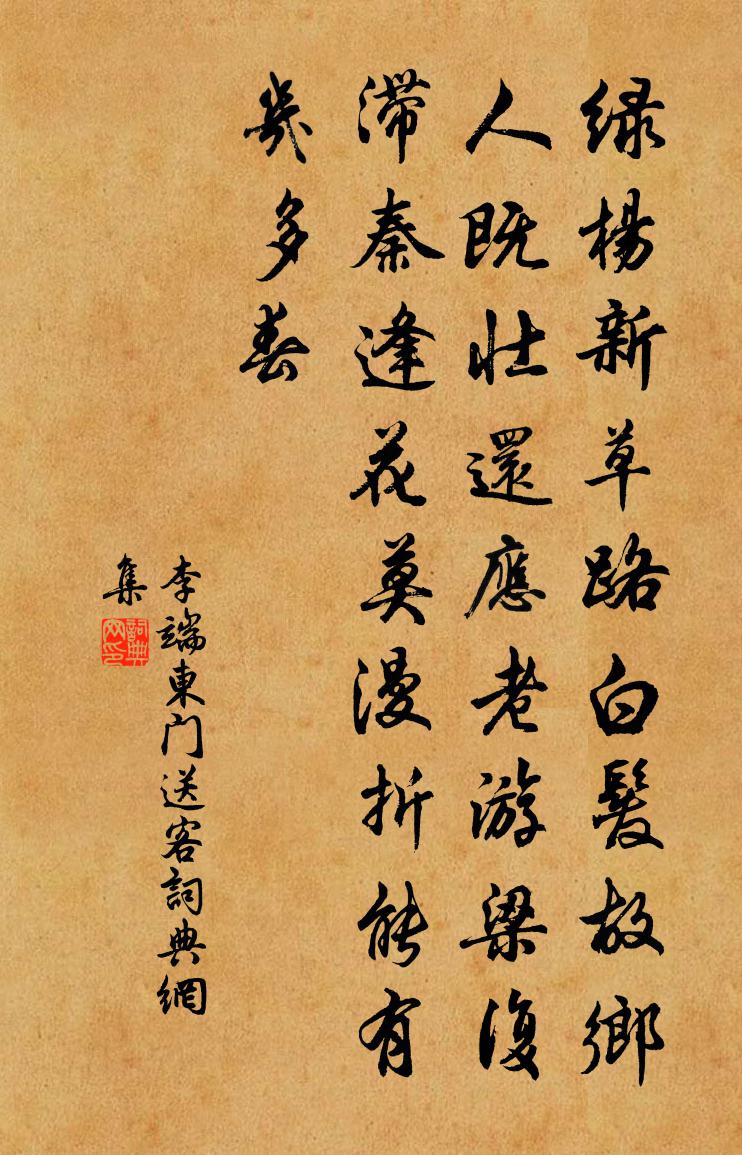 緑楊新草路白髮故鄉
人既壯還應老游梁復
滯秦逢花莫漫折能有
幾多春
李端東門送客詞典網
集
詞典網印